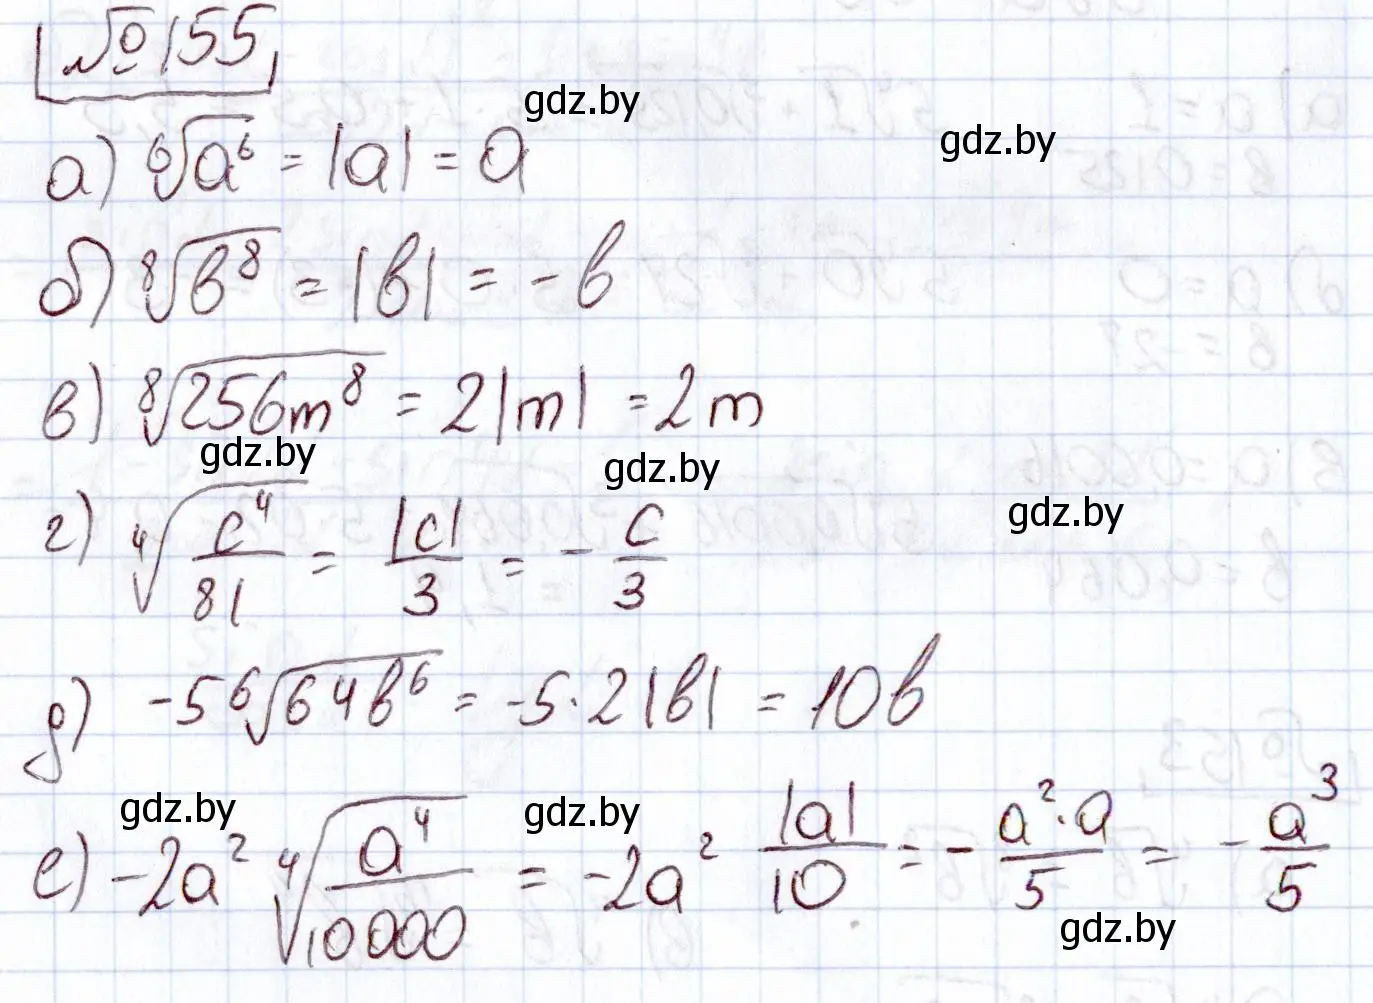 №155,
gdz.by
gdz.by
а) ⁶√a⁶ = |a| = a
б) ⁸√b⁸ = |b| = - b
в) ⁸√256m⁸ = 2|m| = 2m
gdz.by
gdz.by
gdz.by
г) ⁴√(c⁴/81) = |c|/3 = - c/3
д) -5 ⁶√64b⁶ = -5·2|b| = 10b
gdz.by
gdz.by
е) -2a² ⁴√(a⁴/10000) = -2a² |a|/10 = - a²·a/5 = - a³/5
gdz.by